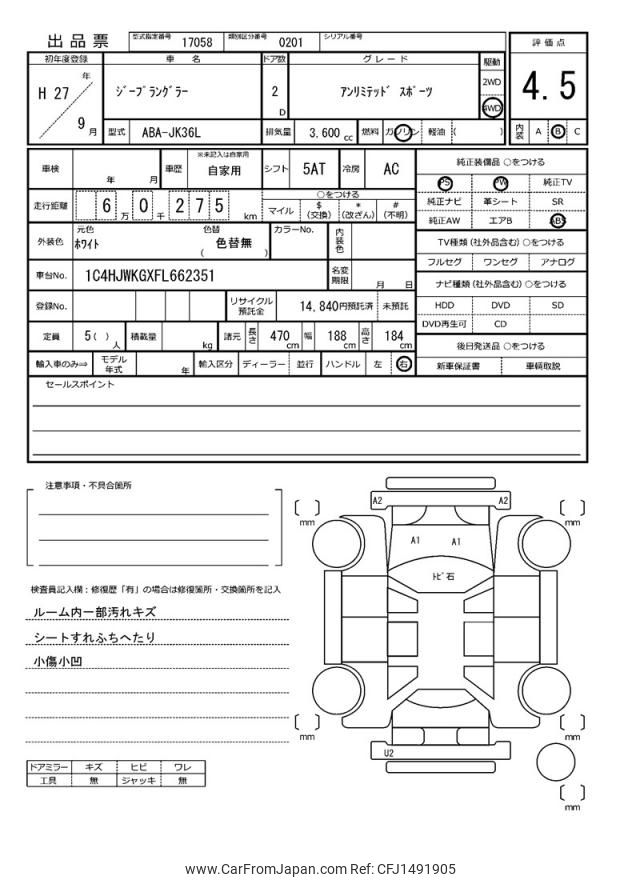 出品票 型式指定番号 17058 類別区分番号 0201 シリアル番号
初年度登録 車名 ドア数 グレード 駆動 評価点
H 27 年 9 月 ジープラングラー 2 D アンリミテッド スポーツ 2WD 4WD 4.5
型式 ABA-JK36L 排気量 3,600 cc 燃料 ガソリン 軽油 ( ) 内装 A B C
車検 年 月 車歴 ※未記入は自家用 自家用 シフト 5AT 冷房 AC 純正装備品 ○をつける
PS PW 純正TV
走行距離 6 万 0 千 2 7 5 km ○をつける 純正ナビ 革シート SR
マイル $ (交換) * (改ざん) # (不明) 純正AW エアB ABS
外装色 元色 ホワイト 色替 ( 色替無 ) カラーNo. 内装色 TV種類 (社外品含む) ○をつける
フルセグ ワンセグ アナログ
車台No. 1C4HJWKGXFL662351 名変期限 月 日 ナビ種類 (社外品含む) ○をつける
登録No. リサイクル預託金 14,840円預託済 未預託 HDD DVD SD
DVD再生可 CD
定員 5 ( ) 人 積載量 kg 諸元 長さ 470 cm 幅 188 cm 高さ 184 cm 後日発送品 ○をつける
輸入車のみ⇒ モデル年式 年 輸入区分 ディーラー 並行 ハンドル 左 右 新車保証書 車輌取説
セールスポイント
注意事項・不具合箇所
A2 A2
mm mm
A1 A1
トビ石
検査員記入欄：修復歴「有」の場合は修復箇所・交換箇所を記入
ルーム内一部汚れキズ
シートすれふちへたり
小傷小凹
mm mm
U2
ドアミラー キズ ヒビ ワレ
工具 無 ジャッキ 無
mm
www.CarFromJapan.com Ref: CFJ1491905